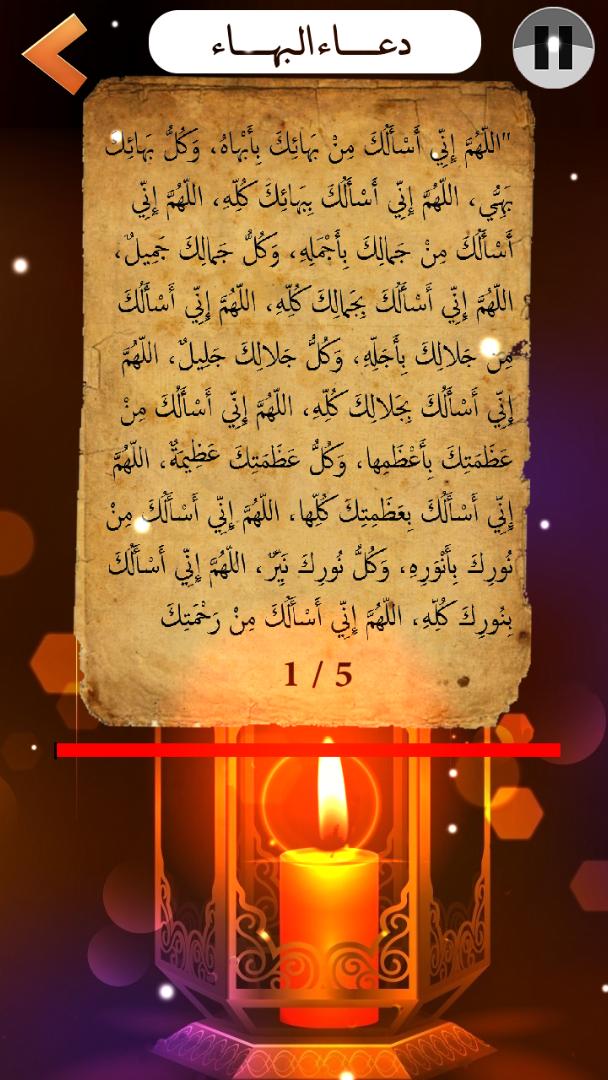 دعـــاءالبهـــاء
"اللّهُمَّ إِنِّي أَسْأَلُكَ مِنْ بَهائِكَ بِأَبْهاهُ، وَكُلُّ بَهائِكَ
بَهِيُّ، اللّهُمَّ إِنِّي أَسْأَلُكَ بِبَهائِكَ كُلِّهِ، اللّهُمَّ إِنِّي
أَسْأَلُكَ مِنْ جَمالِكَ بِأَجْمَلِهِ، وَكُلُّ جَمالِكَ جَمِيلٌ،
اللّهُمَّ إِنِّي أَسْأَلُكَ بِجَمالِكَ كُلِّهِ، اللّهُمَّ إِنِّي أَسْأَلُكَ
مِن جَلالِكَ بِأَجَلِّهِ، وَكُلُّ جَلالِكَ جَلِيلٌ، اللّهُمَّ
إِنِّي أَسْأَلُكَ بِجَلالِكَ كُلِّهِ، اللّهُمَّ إِنِّي أَسْأَلُكَ مِنْ
عَظَمَتِكَ بِأَعْظَمِها، وَكُلُّ عَظَمَتِكَ عَظِيمَةٌ، اللّهُمَّ
إِنِّي أَسْأَلُكَ بِعَظَمِتِكَ كُلِّها، اللّهُمَّ إِنِّي أَسْأَلُكَ مِنْ
نُورِكَ بِأَنْوَرِهِ، وَكُلُّ نُورِكَ نَيِّرٌ، اللّهُمَّ إِنِّي أَسْأَلُكَ
بِنُورِكَ كُلِّهِ، اللّهُمَّ إِنِّي أَسْأَلُكَ مِنْ رَحْمَتِكَ
1 / 5